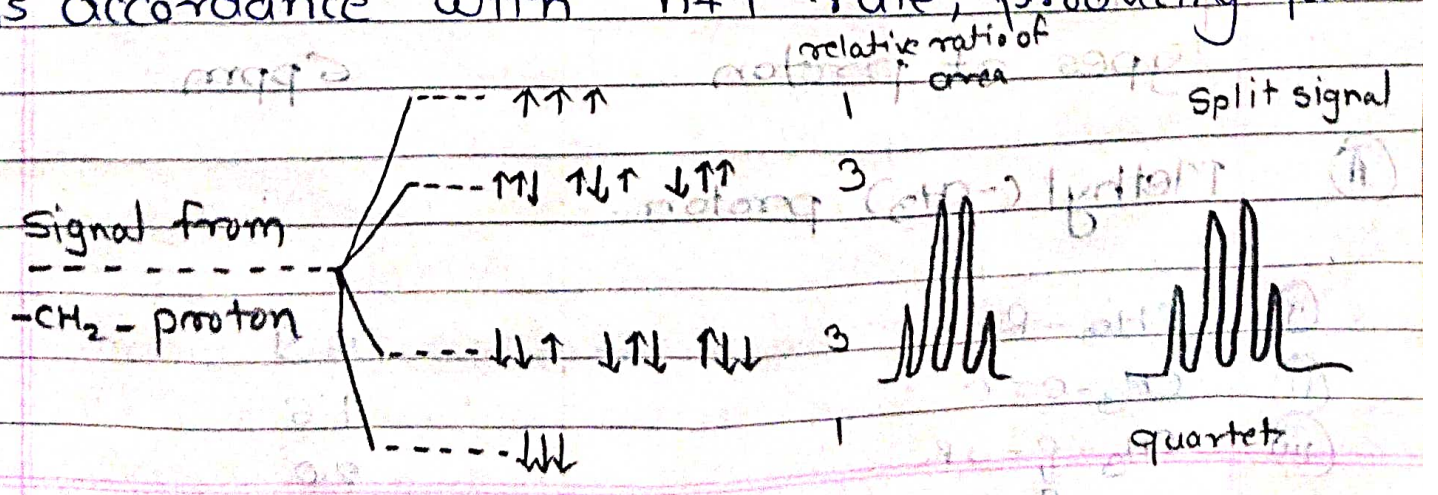 s accordance with n+1 rule, producing
relative ratio of
area
Split signal
↑↑↑ 1
↑↑↓ ↑↓↑ ↓↑↑ 3
Signal from
-CH₂- proton
↓↓↑ ↓↑↓ ↑↓↓ 3
↓↓↓ 1
quartet